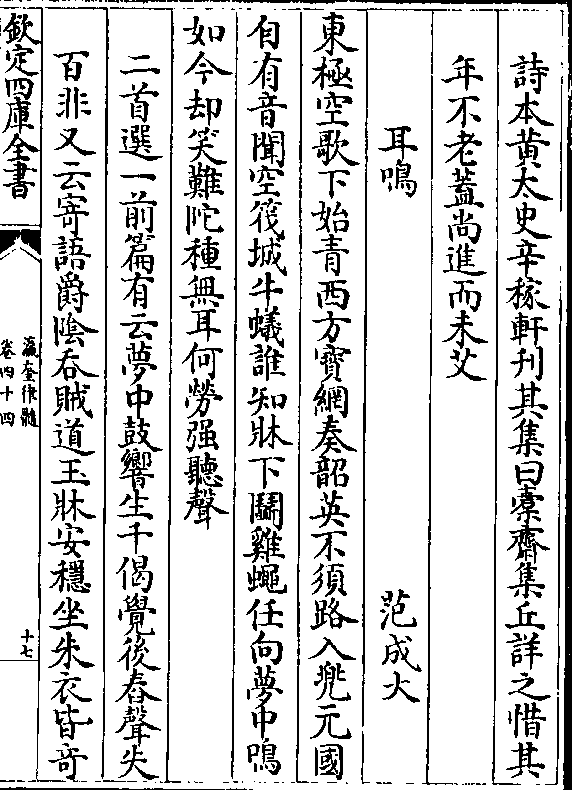 詩本黄太史辛稼軒刋其集曰槖齋集丘詳之惜其
年不老蓋尚進而未艾
耳鳴　范成大
東極空歌下始青西方寳網奏韶英不須路入兠元國
自有音聞空筏城牛蟻誰知牀下鬭雞蠅任向夢中鳴
如今却笑難陀種無耳何勞强聽聲
二首選一前篇有云夢中鼓響生千偈覺後舂聲失
百非又云寄語爵隂吞賊道玉牀安穩坐朱衣皆竒
欽定四庫全書
瀛奎律髓
卷四十四
十七